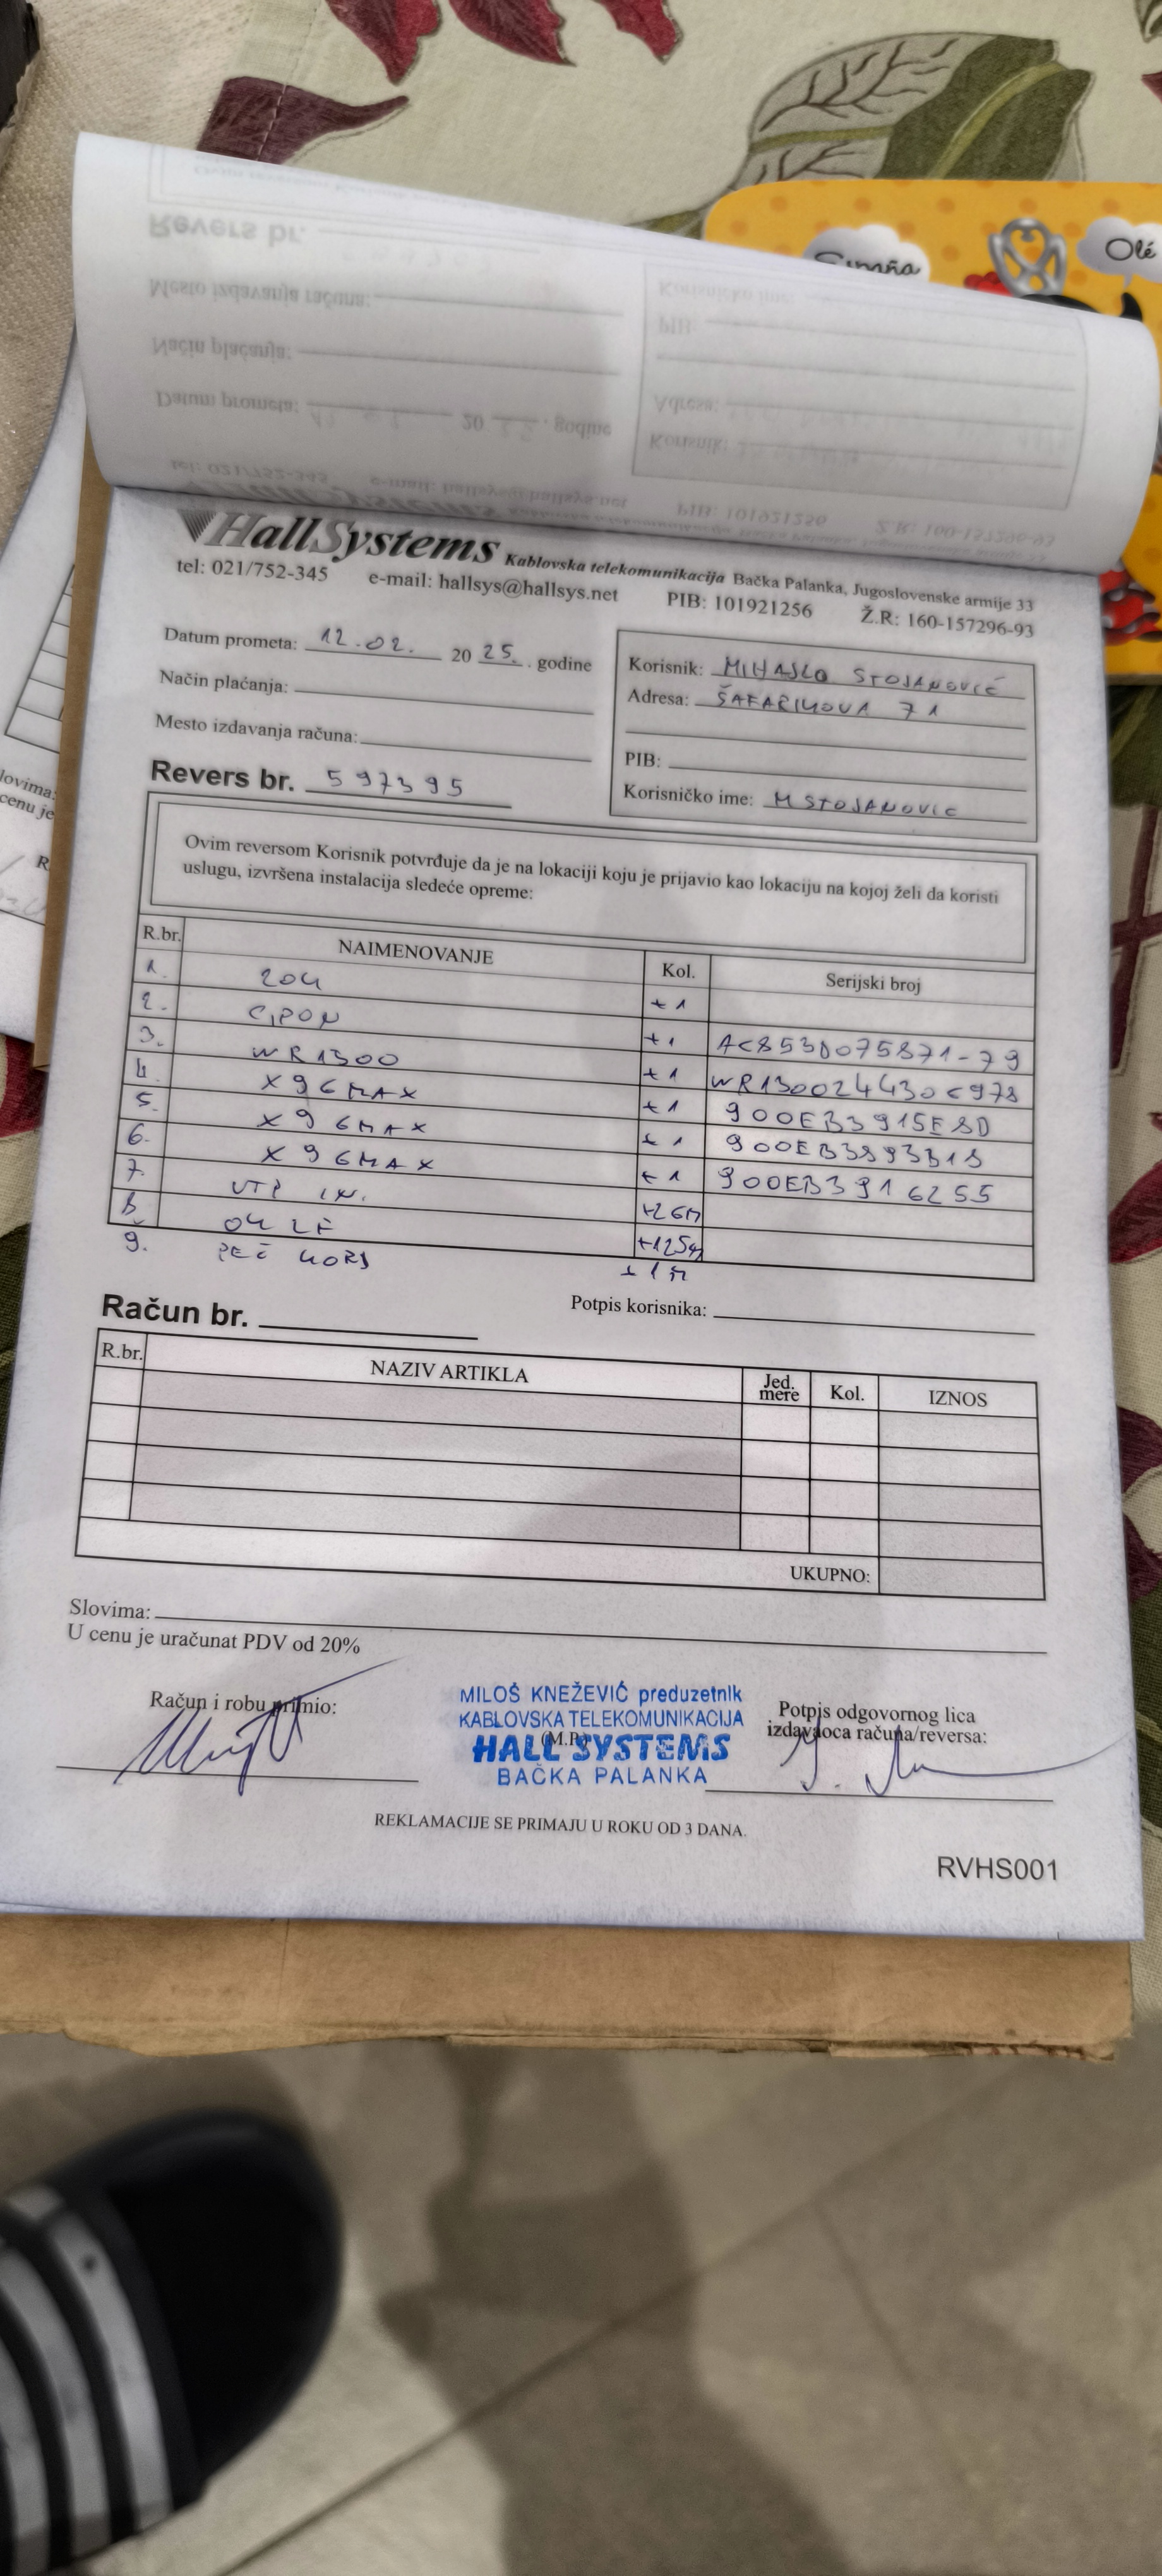 España
Olé
HallSystems Kablovska telekomunikacija Bačka Palanka, Jugoslovenske armije 33
tel: 021/752-345 e-mail: hallsys@hallsys.net PIB: 101921256 Ž.R: 160-157296-93
Datum prometa: 12.02. 2025. godine
Način plaćanja:
Mesto izdavanja računa:
Revers br. 597395
Korisnik: MIHAJLO STOJANOVIĆ
Adresa: ŠAFARIKOVA 71
PIB:
Korisničko ime: MSTOJANOVIC
Ovim reversom Korisnik potvrđuje da je na lokaciji koju je prijavio kao lokaciju na kojoj želi da koristi
uslugu, izvršena instalacija sledeće opreme:
R.br. NAIMENOVANJE Kol. Serijski broj
1. ZOK +1
2. GPON +1 AC853D075871-79
3. WR1300 +1 WR130024430C978
4. X96MAX +1 900EB3915E8D
5. X96MAX +1 900EB3893B18
6. X96MAX +1 900EB3916255
7. UTP IN. +26M
8. OK 2F +125M
9. PEČ KORD +1M
Potpis korisnika:
Račun br.
R.br. NAZIV ARTIKLA Jed. mere Kol. IZNOS
UKUPNO:
Slovima:
U cenu je uračunat PDV od 20%
Račun i robu primio:
MILOŠ KNEŽEVIĆ preduzetnik
KABLOVSKA TELEKOMUNIKACIJA
(M.P.)
HALL SYSTEMS
BAČKA PALANKA
Potpis odgovornog lica
izdavaoca računa/reversa:
REKLAMACIJE SE PRIMAJU U ROKU OD 3 DANA.
RVHS001